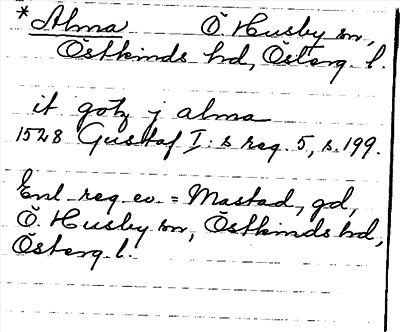 *Alma Ö. Husby sn,
Östkinds hd, Österg. l.
it götz j alma
1528 Gustaf I:s reg. 5, s. 199.
Enl. reg. ev. = Mastad, gd,
Ö. Husby sn, Östkinds hd,
Österg. l.